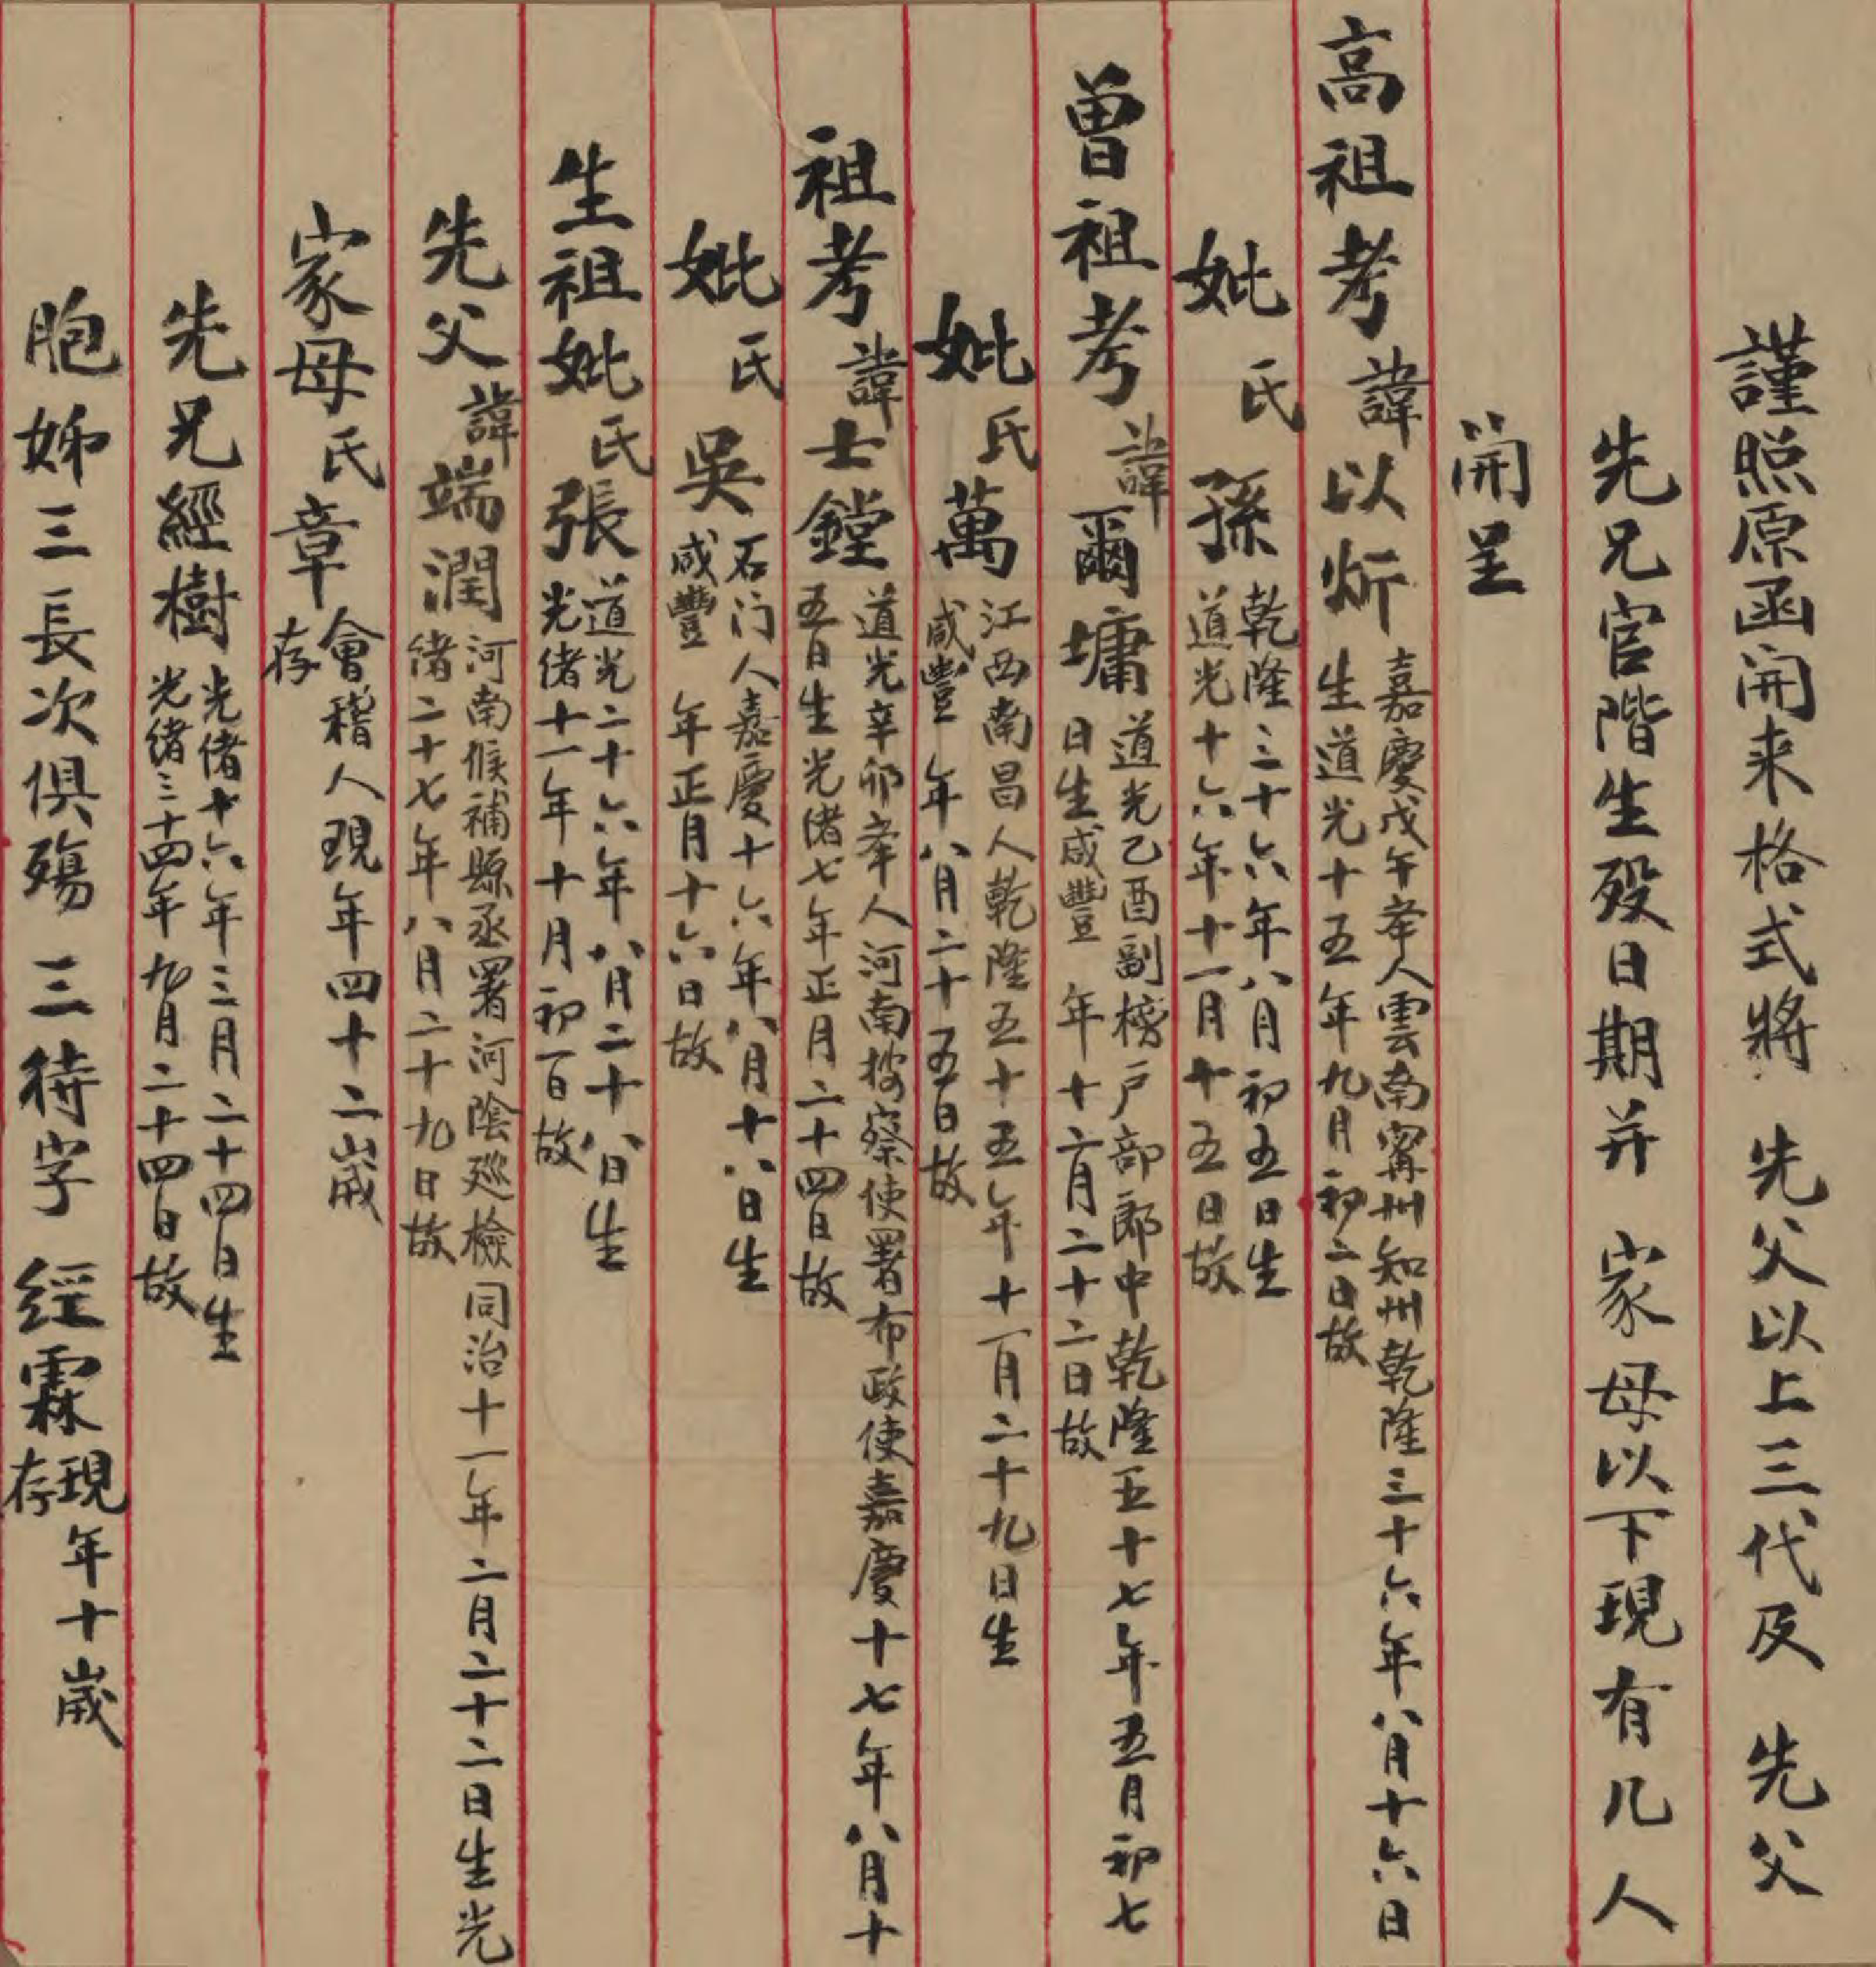 謹照原函開来格式將 先父以上三代及 先父
先兄官階生歿日期并 家母以下現有几人
開呈
高祖考諱以炘嘉慶戊午舉人雲南甯州知州乾隆三十六年八月十六日
生道光十五年九月初二日故
妣氏孫乾隆三十六年八月初五日生
道光十六年十一月十五日故
曽祖考諱爾墉道光乙酉副榜戶部郎中乾隆五十七年五月初七
日生咸豐 年十二月二十二日故
妣氏萬江西南昌人乾隆五十五年十一月二十九日生
咸豐 年八月二十五日故
祖考諱士鏜道光辛卯舉人河南按察使署布政使嘉慶十七年八月十
五日生光緒七年正月二十四日故
妣氏吳石门人嘉慶十六年八月十八日生
咸豐 年正月十六日故
生祖妣氏張道光二十六年八月二十八日生
光緒十一年十月初一日故
先父諱端潤河南候補縣丞署河陰廵檢同治十一年二月二十二日生光
緒二十七年八月二十九日故
家母氏章會稽人現年四十二歲
存
先兄經樹光緒十六年三月二十四日生
光緒三十四年九月二十四日故
胞姊三長次俱殤三待字經霖現年十歲
存